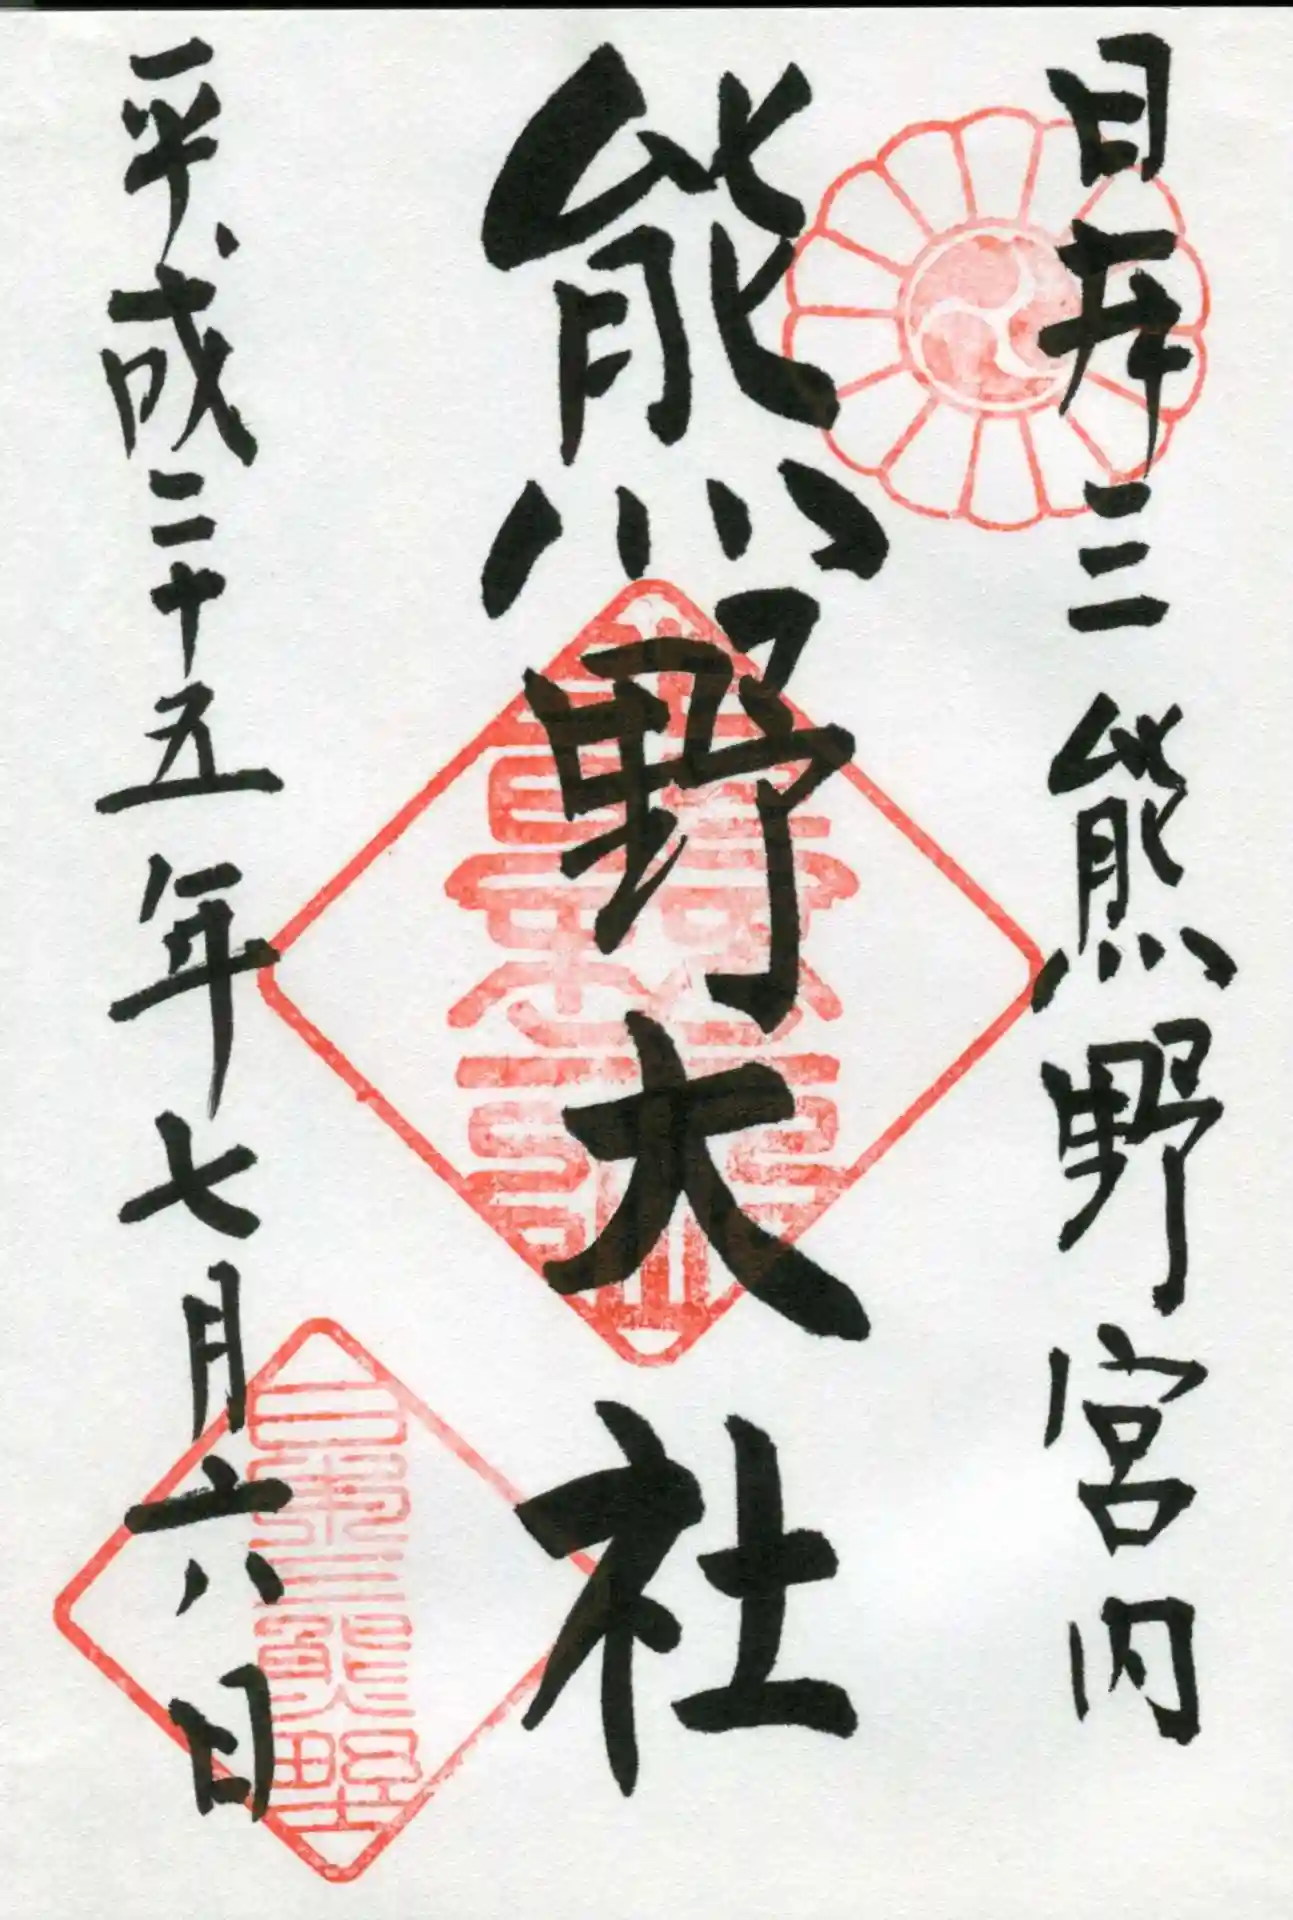 日本三熊野宮内
熊野大社
平成二十五年七月六日
日本三熊野